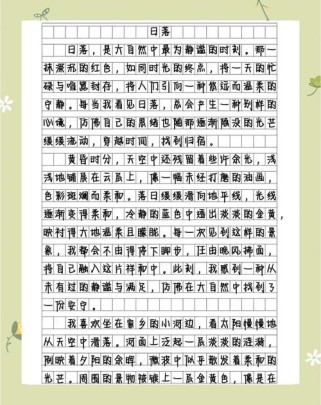 日落
日落，是大自然中最为静谧的时刻。那一
抹深邃的红色，如同时光的终点，将一天的忙
碌与喧嚣封存，将人们引向一种悠远而温柔的
宁静。每当我看见日落，总会产生一种别样的
心境，仿佛自己的思绪也随那逐渐隐没的光芒
缓缓流动，穿越时间，找到归宿。
黄昏时分，天空中还残留着些许余光，浅
浅地铺展在云层上，像一幅未经打磨的油画，
色彩斑斓而柔和。落日缓缓滑向地平线，光线
逐渐变得柔和，冷静的蓝色中透出淡淡的金黄，
映衬得大地温柔且朦胧。每一次见到这样的景
象，我都会不由得停下脚步，任由晚风拂面，
将自己融入这片祥和中。此刻，我感到一种从
未有过的静谧与满足，仿佛在大自然中找到了
一份安宁。
我喜欢坐在家乡的小河边，看太阳慢慢地
从天空中滑落。河面上泛起一层淡淡的涟漪，
倒映着夕阳的余晖，微波中似乎散发着柔和的
光芒。周围的景物被镀上一层金黄色，像是在